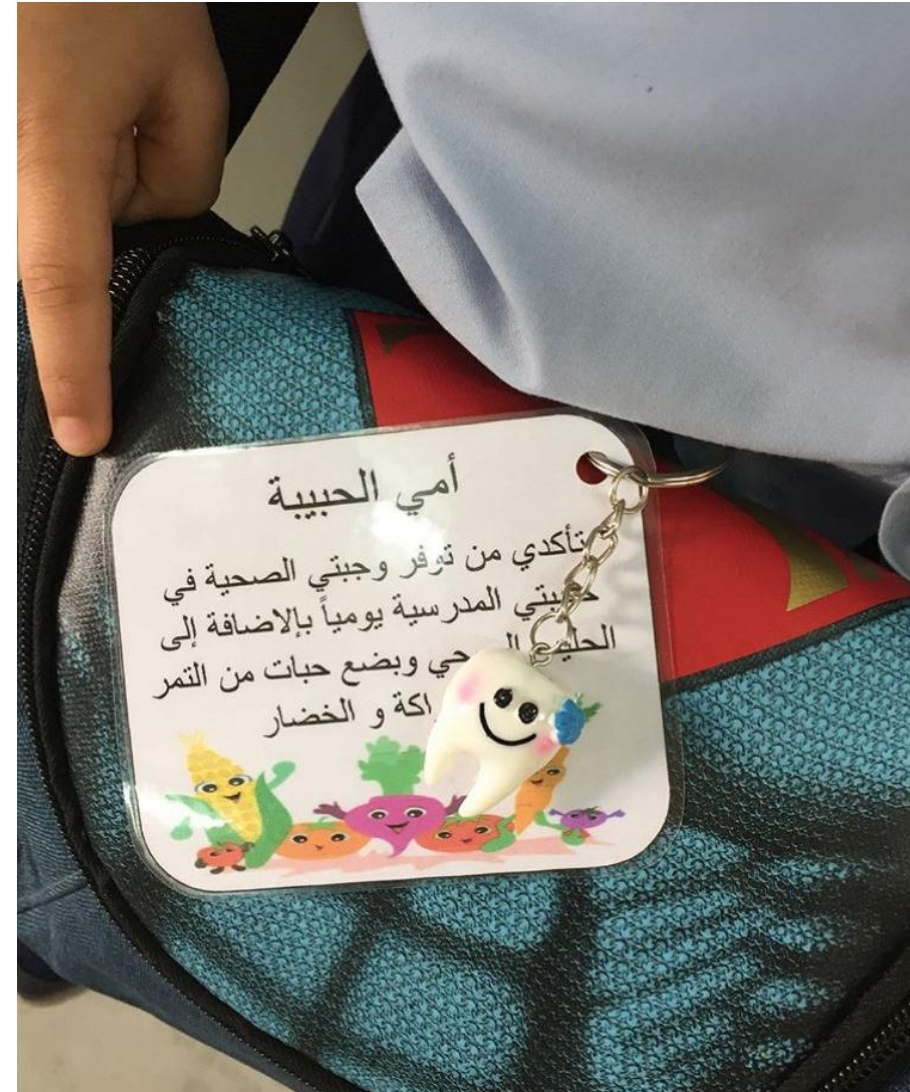 أمي الحبيبة
تأكدي من توفر وجبتي الصحية في
المدرسية يومياً بالإضافة إلى
وبضع حبات من التمر
و الخضار